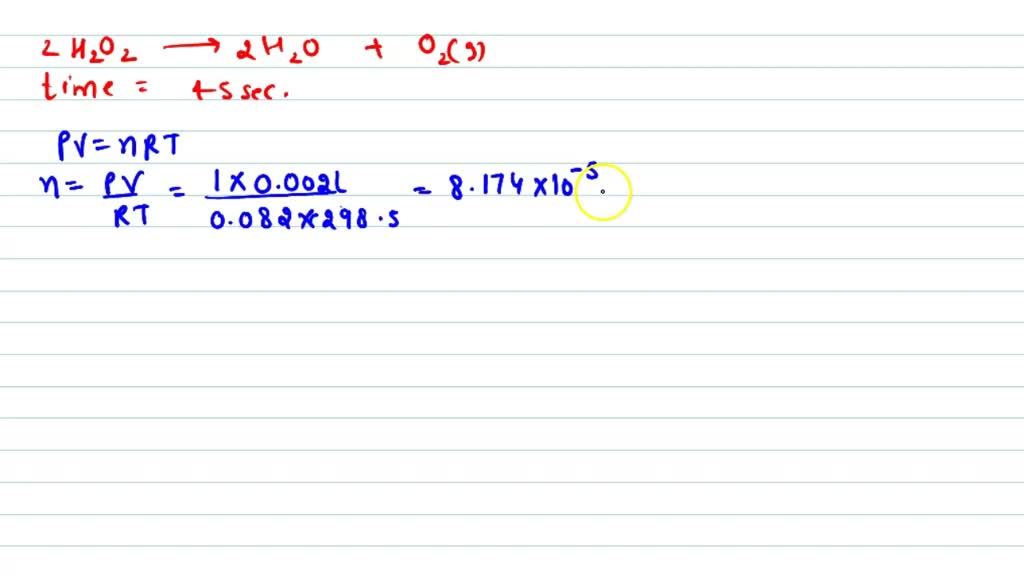 2 H₂O₂ → 2H₂O + O₂(g)
time = 45 sec.
PV = nRT
n = PV/RT = 1 × 0.002L / 0.082 × 298.5 = 8.174 × 10⁻⁵